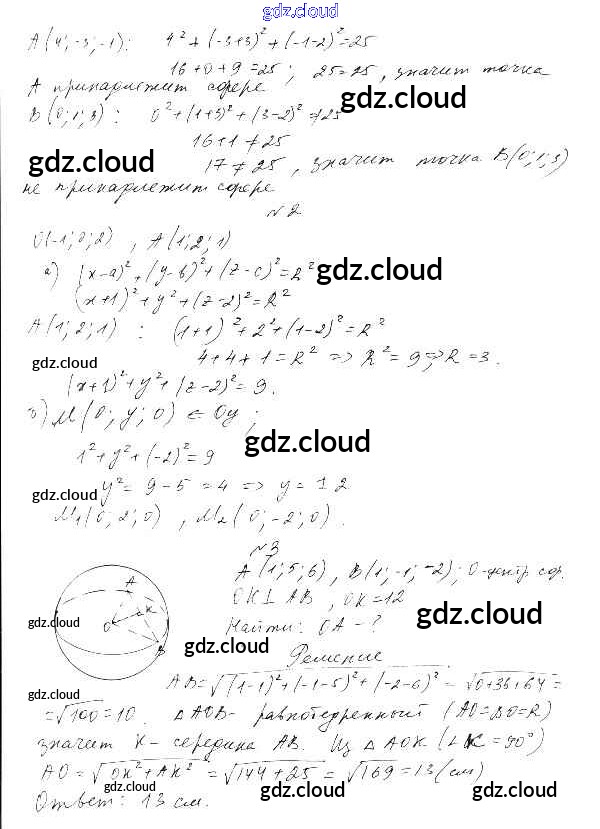 gdz.cloud
A(4; -3; -1): 4² + (-3+3)² + (-1-2)² = 25
16 + 0 + 9 = 25; 25 = 25, значит точка
A принадлежит сфере
gdz.cloud
B(0; 1; 3): 0² + (1+3)² + (3-2)² ≠ 25
16+1 ≠ 25
gdz.cloud
17 ≠ 25, значит точка B(0; 1; 3)
не принадлежит сфере
gdz.cloud
№2
O(-1; 0; 2), A(1; 2; 1)
а) (x-a)² + (y-b)² + (z-c)² = R²
gdz.cloud
(x+1)² + y² + (z-2)² = R²
A(1; 2; 1): (1+1)² + 2² + (1-2)² = R²
4+4+1 = R² => R² = 9 => R = 3.
gdz.cloud
gdz.cloud
(x+1)² + y² + (z-2)² = 9.
б) M(0; y; 0) ∈ Oy;
1² + y² + (-2)² = 9
gdz.cloud
y² = 9-5 = 4 => y = ±2
gdz.cloud
gdz.cloud
M₁(0; 2; 0), M₂(0; -2; 0).
№3
A(1; 5; 6), B(1; -1; -2); O-центр сф.
A
OK⊥AB, OK=12
K
O
gdz.cloud
Найти: OA-?
gdz.cloud
B
gdz.cloud
Решение
AB = √((1-1)² + (-1-5)² + (-2-6)²) = √(0+36+64) =
gdz.cloud
= √100 = 10. △AOB- равнобедренный (AO=BO=R)
gdz.cloud
значит K- середина AB. Из △AOK (∠K=90°)
AO = √(OK² + AK²) = √(144+25) = √169 = 13 (см)
Ответ: 13 см.
gdz.cloud
gdz.cloud
gdz.cloud